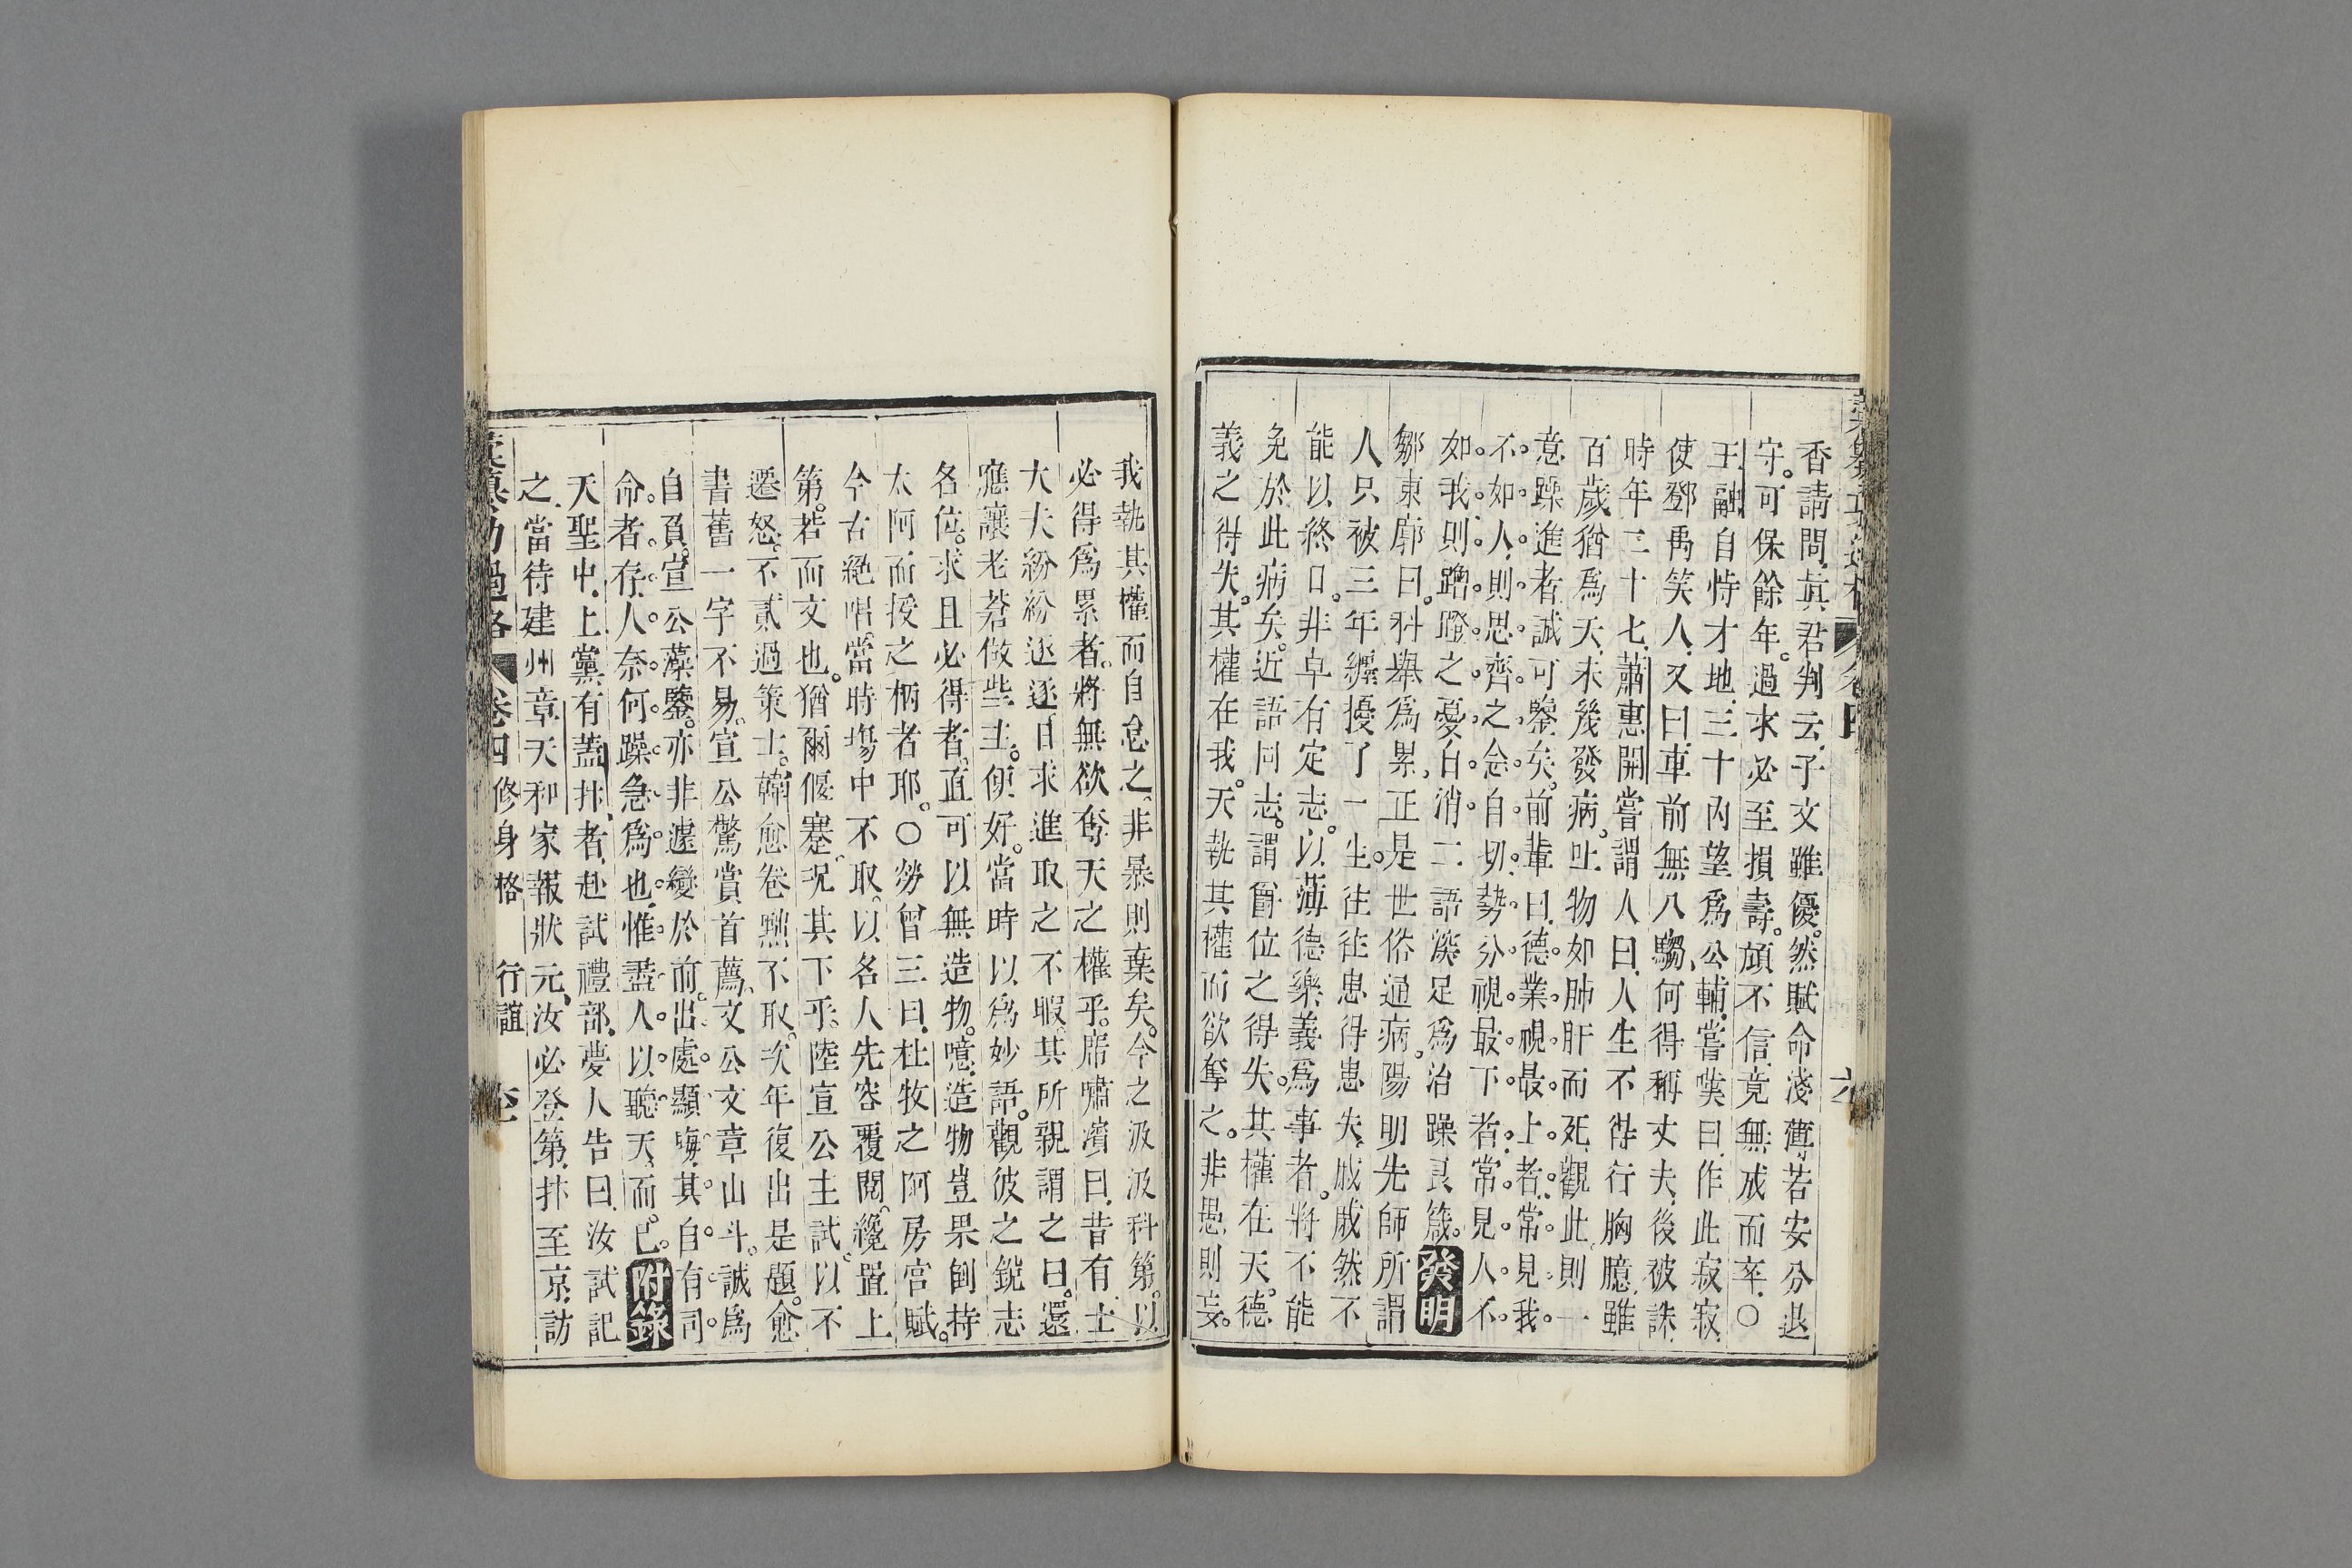 香請問真君判云子文雖優。然賦命淺薄若安分退
守。可保餘年。過求必至損壽。頎不信竟無成而卒。〇
王融自恃才地三十內望為公輔嘗嘆曰作此寂寂
使鄧禹笑人又曰車前無八騶何得稱丈夫後被誅
時年二十七蕭惠開嘗謂人曰人生不得行胸臆雖
百歲猶為夭未幾發病吐物如肺肝而死觀此則一
意躁進者誠可鑒矣。前輩曰德業視最上者常見我
不如人則思齊之念自切勢分視最下者常見人不
如我則蹭蹬之憂自消二語漢足為治躁良箴。發明
鄒東廓曰科舉為累正是世俗通病陽明先師所謂
人只被三年纏擾了一生。往往患得患失。戚戚然不
能以終日。非卓有定志。以薄德樂義為事者。將不能
免於此病矣。近語同志。謂爵位之得失。其權在天。德
義之得失。其權在我。天執其權而欲奪之。非愚則妄。
我執其權而自怠之。非暴則棄矣。今之汲汲科第。以
必得為累者。將無欲奪天之權乎。席嘯濱曰昔有士
大夫紛紛逐逐日求進取之不暇其所親謂之曰還
應讓老蒼做些主。便好。當時以為妙語。觀彼之銳志
各位。求且必得者直可以無造物。噫造物豈果倒持
太阿而授之柄者耶。〇勞曾三曰杜牧之阿房宮賦。
今古絕唱當時場中不取以名人先容覆閱纔置上
第。若而文也。猶爾偃蹇況其下乎。陸宣公主試以不
遷怒不貳過策士。韓愈卷黜不取。次年復出是題。愈
書舊一字不易。宣公驚賞首薦文公文章山斗。誠為
自負。宣公藻鑒。亦非遽變於前。出處顯晦其自有司
命者存人奈何躁急為也惟盡人以聽天而已。附錄
天聖中上黨有蓋抃者赴試禮部夢人告曰汝試記
之當待建州章天和家報狀元汝必登第抃至京訪
彙纂功過格 卷四 修身格 行誼